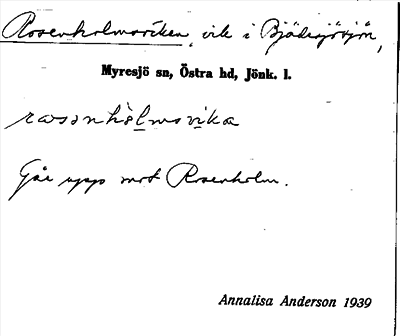 Rosenholmsviken, vik i Bjädesjösjön,
Myresjö sn, Östra hd, Jönk. l.
rosənhòlmsvika
Går upp mot Rosenholm.
Annalisa Anderson 1939